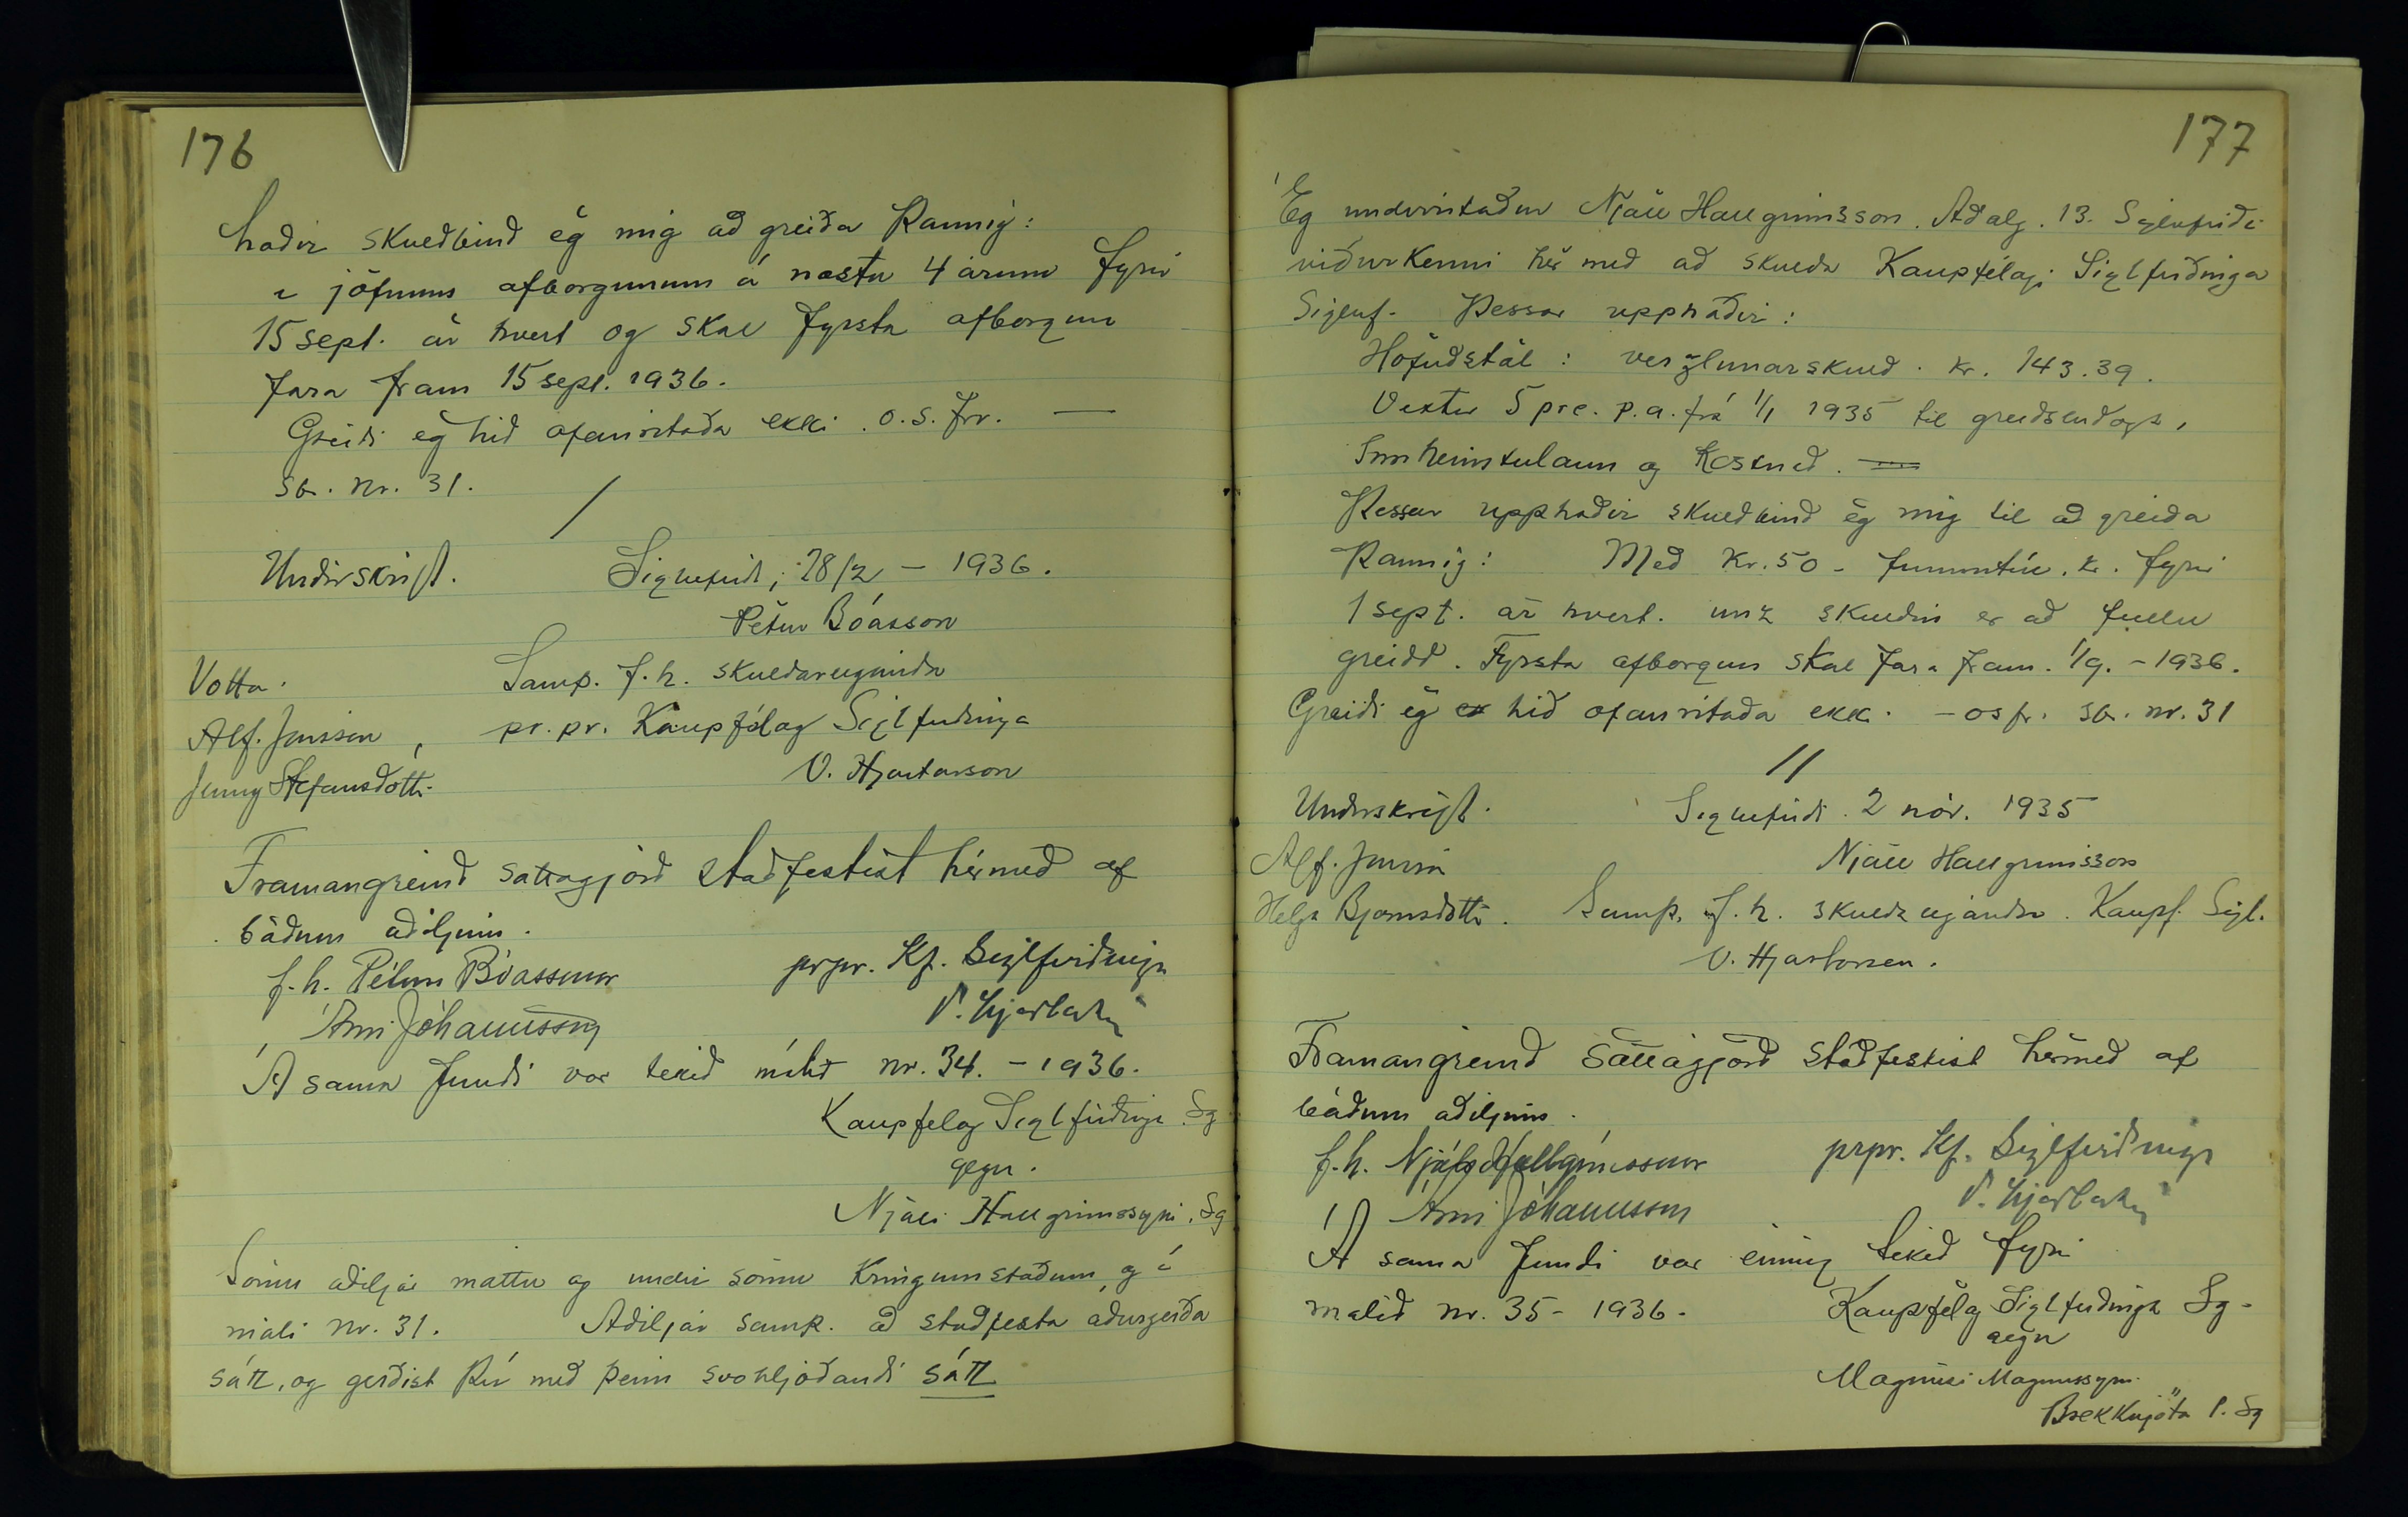 176
hæðir skuldbind ég mig að greiða þannig:
í jöfnum afborgunum á næstu 4 árum fyrir
15 sept. ár hvert og skal fyrsta afborgun
fara fram 15 sept. 1936.
Greiði ég hið ofanritaða ekki . o. s. frv. —
sbr. nr. 31.
/
Undirskrift. Siglufirði, 28/2 - 1936.
Pétur Bóasson
Votta. Samp. f. h. skuldareiganda
Alf. Jónsson, pr. pr. Kaupfélag Siglfirðinga
Jenny Stefánsdóttir V. Hjartarson
Framangreind sáttagjörð staðfestist hérmeð af
báðum aðiljum.
f. h. Péturs Bóassonar prpr. Kf. Siglfirðinga
Árni Jóhannsson V. Hjartars
Á sama fundi var tekið málið nr. 34. - 1936.
Kaupfélag Siglfirðinga. Sg
gegn.
Njáli Hallgrímssyni. Sg
Sömu aðiljar mættu og undir sömu kringumstæðum, og í
máli nr. 31. Aðiljar samþ. að staðfesta áðurgerða
sátt, og gerðist því með þeim svohljóðandi sátt
177
Ég undirritaður Njáll Hallgrímsson. Aðalg. 13. Siglufirði
viðurkenni hér með að skulda Kaupfélagi Siglfirðinga
Sigluf. Þessar upphæðir:
Höfuðstól: verzlunarskuld. kr. 143.39.
Vextir 5 prc. p.a. frá 1/1 1935 til greiðsludags,
Innheimtulaun og Kostnað. —
Þessar upphæðir skuldbind ég mig til að greiða
Þannig: Með kr. 50 - fimmtíu. kr. fyrir
1 sept. ár hvert. unz skuldin er að fullu
greidd. Fyrsta afborgun skal fara fram. 1/9. - 1936.
Greiði ég hið ofanritaða ekki. - osfr. sbr. nr. 31
//
Undirskrift. Siglufirði. 2 nóv. 1935
Alf. Jónsson Njáll Hallgrímsson
Helga Bjornsdóttir. Samþ. f. h. skuldareiganda. Kaupf. Sigl.
V. Hjartarson.
Framangreind sáttagjörð staðfestist hérmeð af
báðum aðiljum.
f. h. Njáls Hallgrímssonar prpr. Kf. Siglfirðinga
Árni Jóhannsson V. Hjartars
Á sama fundi var einnig tekið fyrir
málið nr. 35 - 1936. Kaupfélag Siglfirðinga Sg -
gegn
Magnúsi Magnússyni.
Brekkugötu 1. Sg